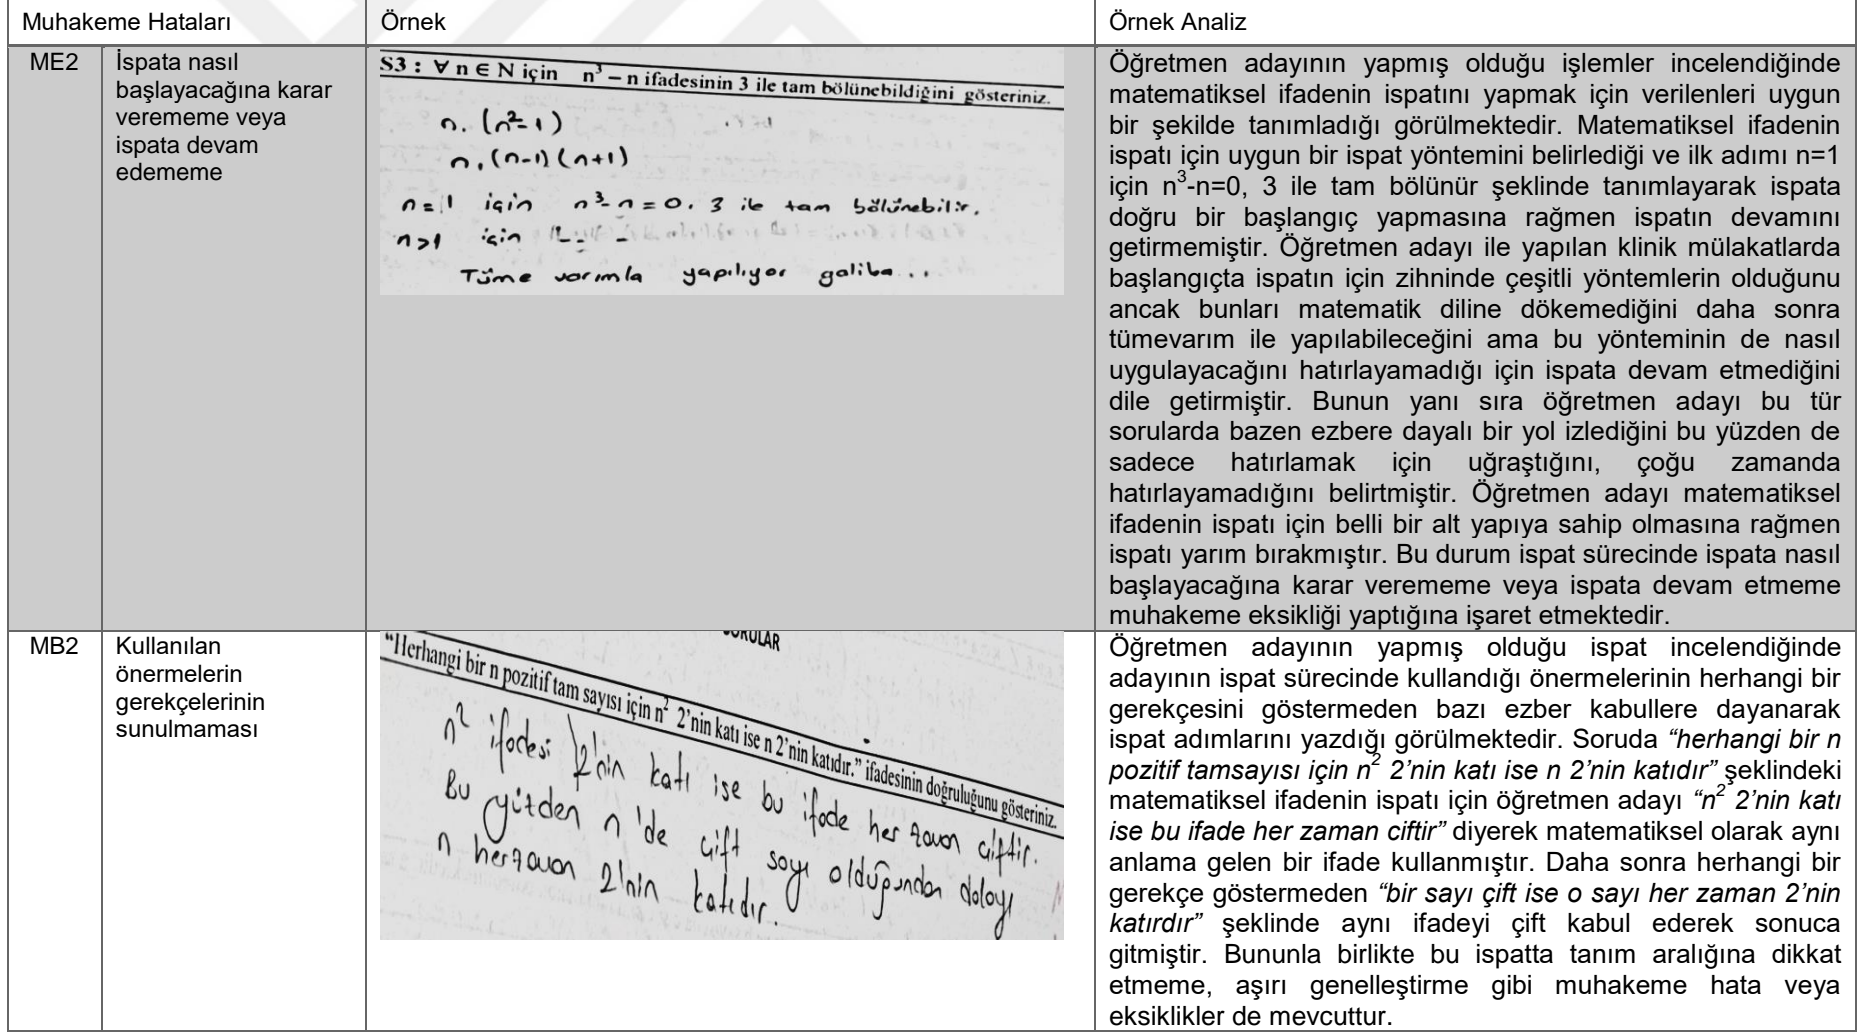 Muhakeme Hataları
Örnek
Örnek Analiz
ME2
İspata nasıl
başlayacağına karar
verememe veya
ispata devam
edememe
S3 : ∀ n ∈ N için n³ – n ifadesinin 3 ile tam bölünebildiğini gösteriniz.
n. (n²-1)
n. (n-1) (n+1)
n=1 için n³-n=0. 3 ile tam bölünebilir.
n>1 için
Tüme varımla yapılıyor galiba...
Öğretmen adayının yapmış olduğu işlemler incelendiğinde
matematiksel ifadenin ispatını yapmak için verilenleri uygun
bir şekilde tanımladığı görülmektedir. Matematiksel ifadenin
ispatı için uygun bir ispat yöntemini belirlediği ve ilk adımı n=1
için n³-n=0, 3 ile tam bölünür şeklinde tanımlayarak ispata
doğru bir başlangıç yapmasına rağmen ispatın devamını
getirmemiştir. Öğretmen adayı ile yapılan klinik mülakatlarda
başlangıçta ispatın için zihninde çeşitli yöntemlerin olduğunu
ancak bunları matematik diline dökemediğini daha sonra
tümevarım ile yapılabileceğini ama bu yönteminin de nasıl
uygulayacağını hatırlayamadığı için ispata devam etmediğini
dile getirmiştir. Bunun yanı sıra öğretmen adayı bu tür
sorularda bazen ezbere dayalı bir yol izlediğini bu yüzden de
sadece hatırlamak için uğraştığını, çoğu zamanda
hatırlayamadığını belirtmiştir. Öğretmen adayı matematiksel
ifadenin ispatı için belli bir alt yapıya sahip olmasına rağmen
ispatı yarım bırakmıştır. Bu durum ispat sürecinde ispata nasıl
başlayacağına karar verememe veya ispata devam etmeme
muhakeme eksikliği yaptığına işaret etmektedir.
MB2
Kullanılan
önermelerin
gerekçelerinin
sunulmaması
SORULAR
“Herhangi bir n pozitif tam sayısı için n² 2’nin katı ise n 2’nin katıdır.” ifadesinin doğruluğunu gösteriniz.
n² ifadesi 2'nin katı ise bu ifade her zaman çifttir.
Bu yüzden n'de çift sayı olduğundan dolayı
n herzaman 2'nin katıdır.
Öğretmen adayının yapmış olduğu ispat incelendiğinde
adayının ispat sürecinde kullandığı önermelerinin herhangi bir
gerekçesini göstermeden bazı ezber kabullere dayanarak
ispat adımlarını yazdığı görülmektedir. Soruda “herhangi bir n
pozitif tamsayısı için n² 2’nin katı ise n 2’nin katıdır” şeklindeki
matematiksel ifadenin ispatı için öğretmen adayı “n² 2’nin katı
ise bu ifade her zaman ciftir” diyerek matematiksel olarak aynı
anlama gelen bir ifade kullanmıştır. Daha sonra herhangi bir
gerekçe göstermeden “bir sayı çift ise o sayı her zaman 2’nin
katırdır” şeklinde aynı ifadeyi çift kabul ederek sonuca
gitmiştir. Bununla birlikte bu ispatta tanım aralığına dikkat
etmeme, aşırı genelleştirme gibi muhakeme hata veya
eksiklikler de mevcuttur.